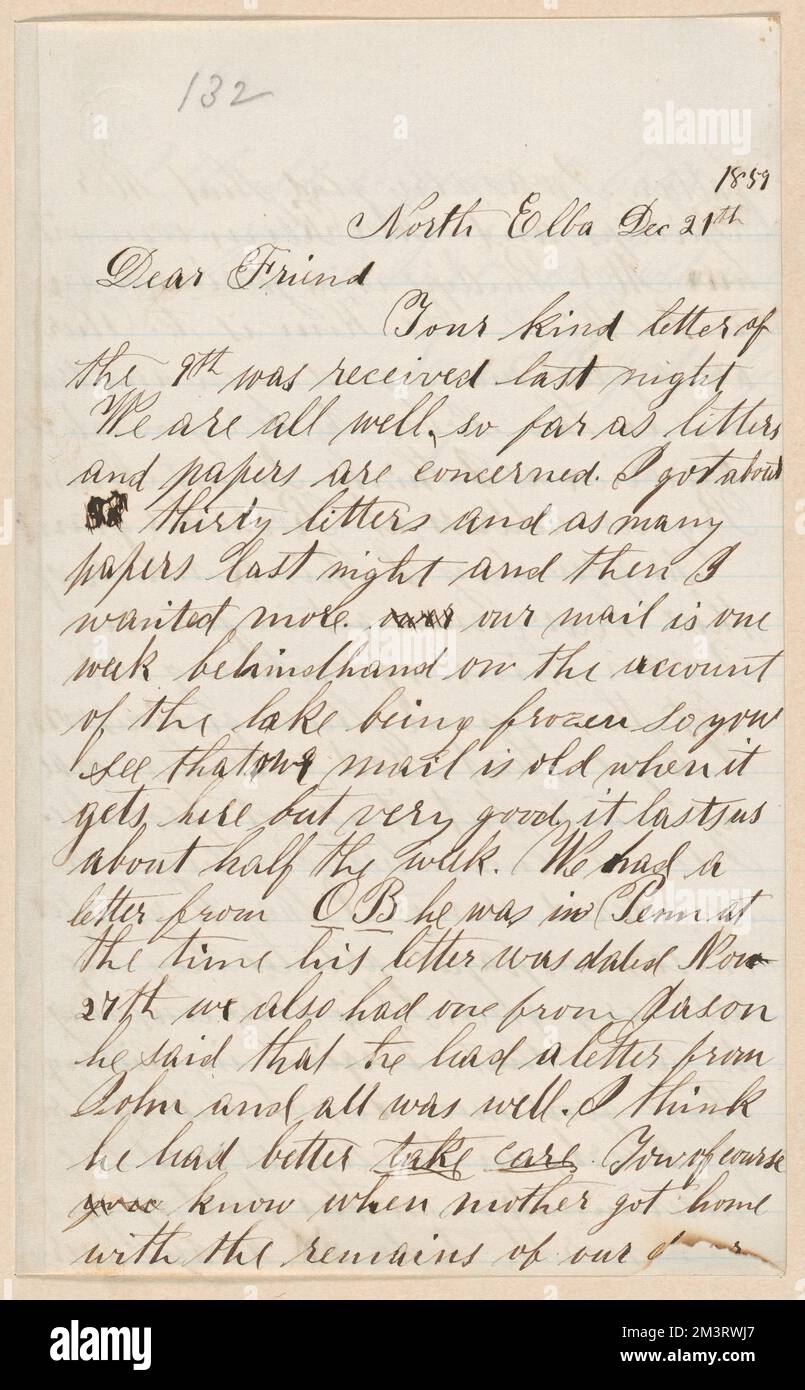 132
1859
North Elba Dec 21th
Dear Friend
Your kind letter of
the 9th was received last night
We are all well, so far as letters
and papers are concerned. I got about
thirty letters and as many
papers last night and then I
wanted more. our mail is one
week behindhand on the account
of the lake being frozen so you
see that our mail is old when it
gets here but very good, it lasts us
about half the week. We had a
letter from O B he was in Penn at
the time his letter was dated Nov
27th we also had one from Jason
he said that he had a letter from
John and all was well. I think
he had better take care. You of course
know when mother got home
with the remains of our
alamy
a
alamy
Image ID: 2M3RWJ7
www.alamy.com